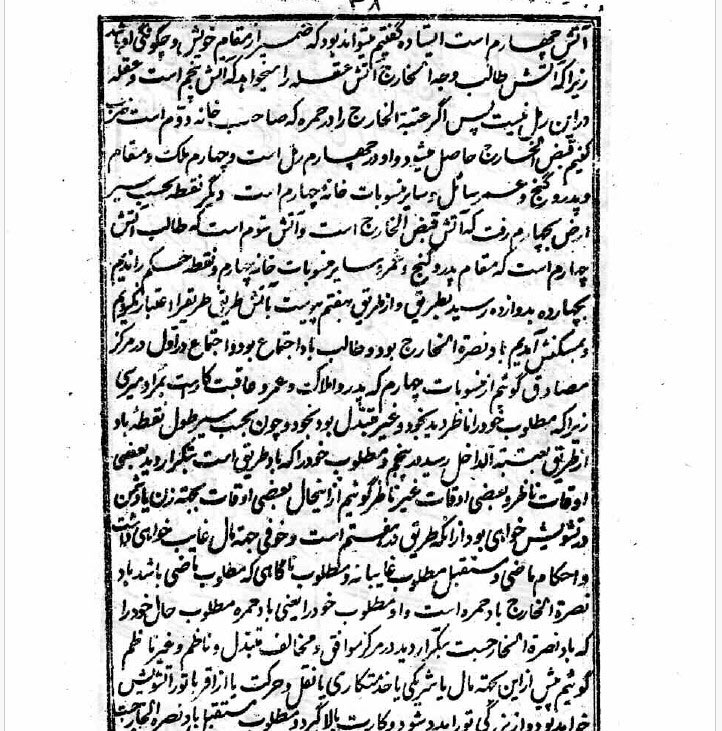 ۳۸
آتش چهارم است ایستاده گفتیم میتواند بود که ضمیر از مقام خویش و چگونگی او باشد
زیرا که آتش طالب وجه الخارج آتش عقله را میخواهد که آتش پنجم است و عقله
در این رمل نیست پس اگر عتبة الخارج را در حمره که صاحب خانه دوم است ضرب
کنیم قبض الخارج حاصل میشود و او در چهارم رمل است و چهارم ملک و مقام
و پدر و گنج و عمر سائل و سایر منسوبات خانهٔ چهارم است دیگر نقطه بحسب سیر
ارض بچهارم رفت که آتش قبض الخارج است و آتش سوم است که طالب آتش
چهارم است که مقام پدر و گنج و عمر و سایر منسوبات خانه چهارم و نقطه حکم راندیم
بچهارده بدوازده رسید بطریق و از طریق بهفتم پیوست بآتش طریق طریقرا اعتبار نکردیم
و بمسکنش آمدیم باد نصرة الخارج بود و طالب باد اجتماع بود و اجتماع در اول در مرکز
مصادق گوئیم از منسوبات چهارم که پدر و املاکت و عمر و عاقبت کارست بمراد میری
زیرا که مطلوب خود را ناظر دید بخود و غیر متبدل بود بخود و چون بحسب سیر طول نقطهٔ باد
از طریق بعتبة الداخل رسید در پنجم و مطلوب خود را که باد طریق است بتکرار دید بعضی
اوقات ناظر و بعضی اوقات غیر ناظر گوئیم از اینحال بعضی اوقات بجهته زن یا دشمن
در تشویش خواهی بود از آنکه طریق در هفتم است و خوفی جهة مال غایب خواهی داشت
و احکام ماضی و مستقبل مطلوب غایبانه و مطلوب ناگاهی که مطلوب ماضی باشد باد
نصرة الخارج باد حمره است و او مطلوب خود را یعنی باد حمره مطلوب حال خود را
که باد نصرة الخارجست بتکرار دید در مرکز موافق و مخالف متبدل و ناظم و غیر ناظم
گوئیم پیش از این بجهته مال یا شریکی یا خدمتکاری یا نقل و حرکت یا از اقربا تو را تشویش
خواهد بود و از بزرگی تو را مدد شود و کارت بالا گیرد و مطلوب مستقبل باد نصرة الخارجست